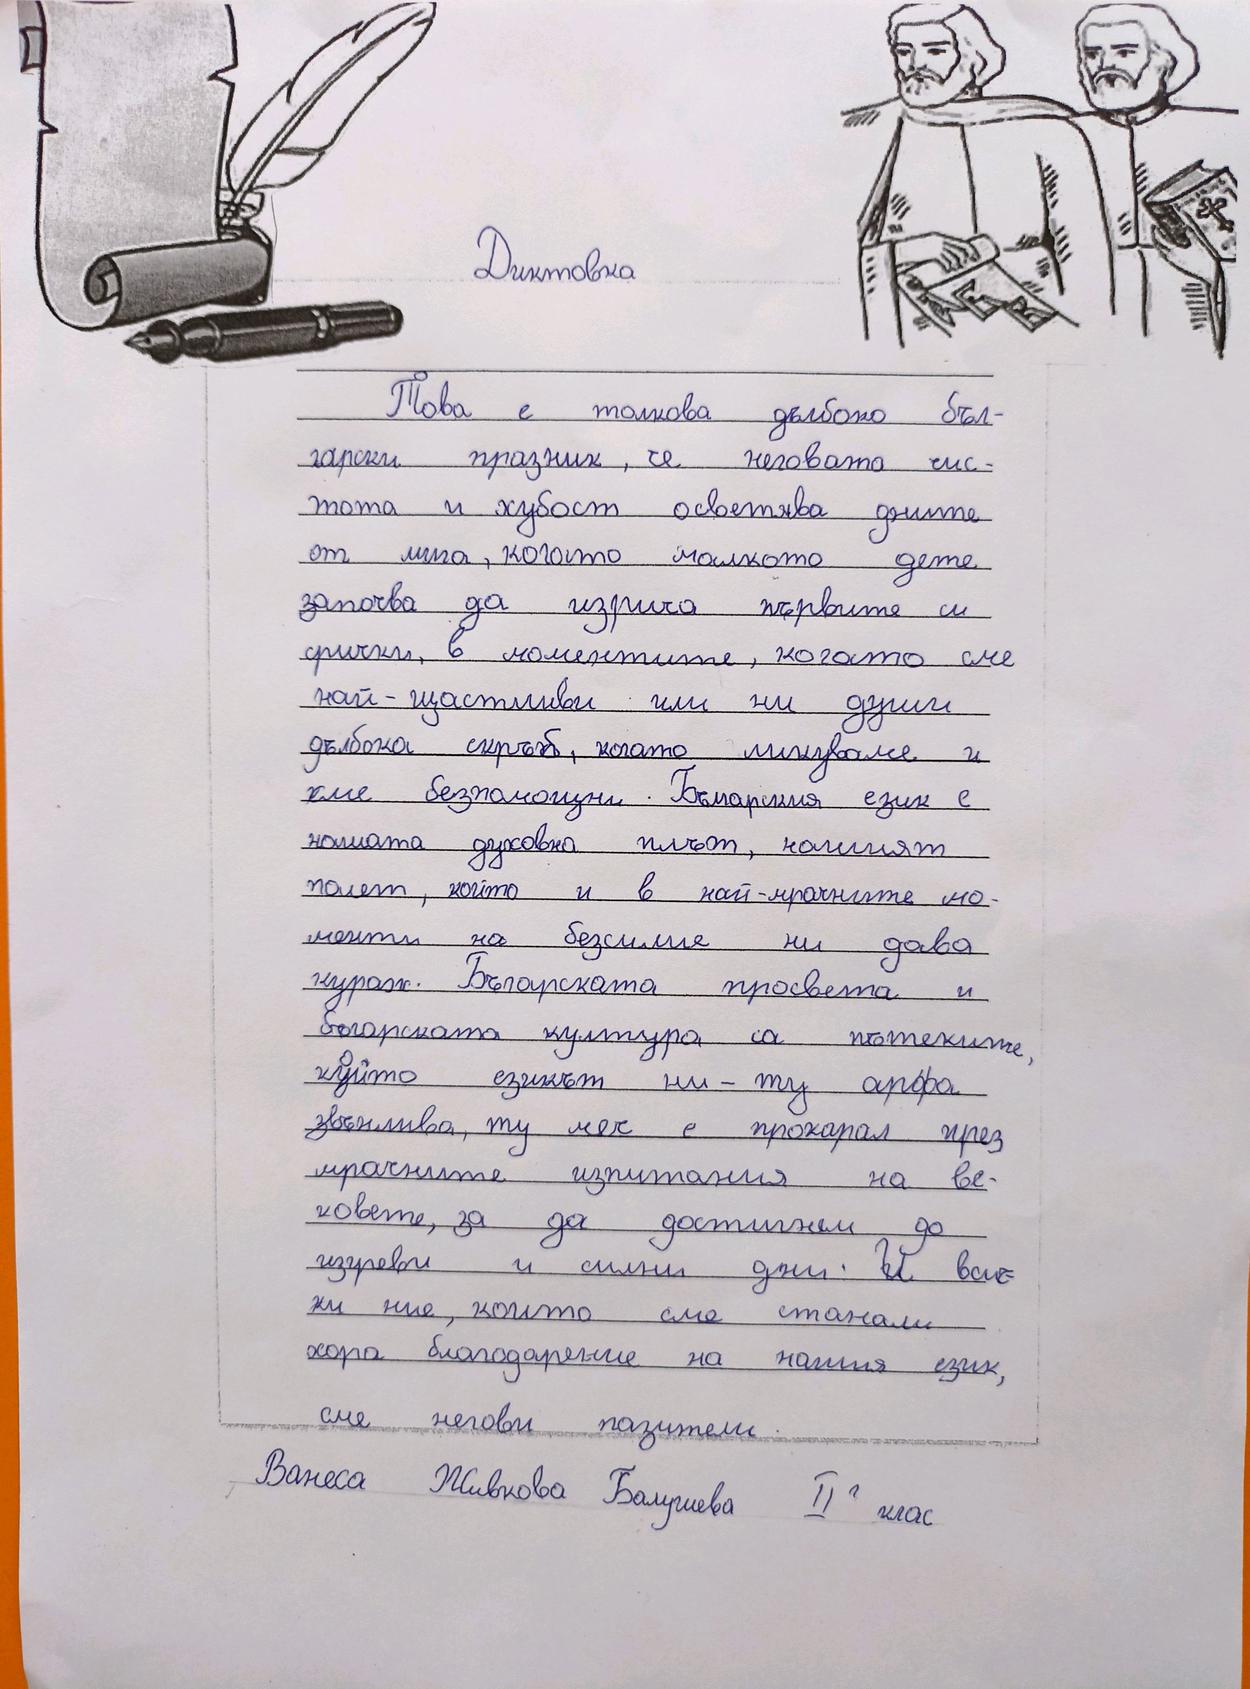 Диктовка
Това е толкова дълбоко бъл-
гарски празник, че неговата чис-
тота и хубост осветява дните
от мига, когато малкото дете
започва да изрича първите си
срички, в моментите, когато сме
най-щастливи или ни души
дълбока скръб, когато ликуваме и
сме безпомощни. Българския език е
нашата духовна плът, нашият
полет, който и в най-мрачните мо-
менти на безсилие ни дава
кураж. Бъгарската просвета и
бъгарската култура са пътеките,
който езикът ни - ту арфа
звънлива, ту меч е прокарал през
мрачните изпитания на ве-
ковете, за да достигнем до
изгреви и силни дни. И всич-
ки ние, които сме станали
хора благодарение на нашия език,
сме негови пазители.
Ванеса Живкова Балушева IIг клас